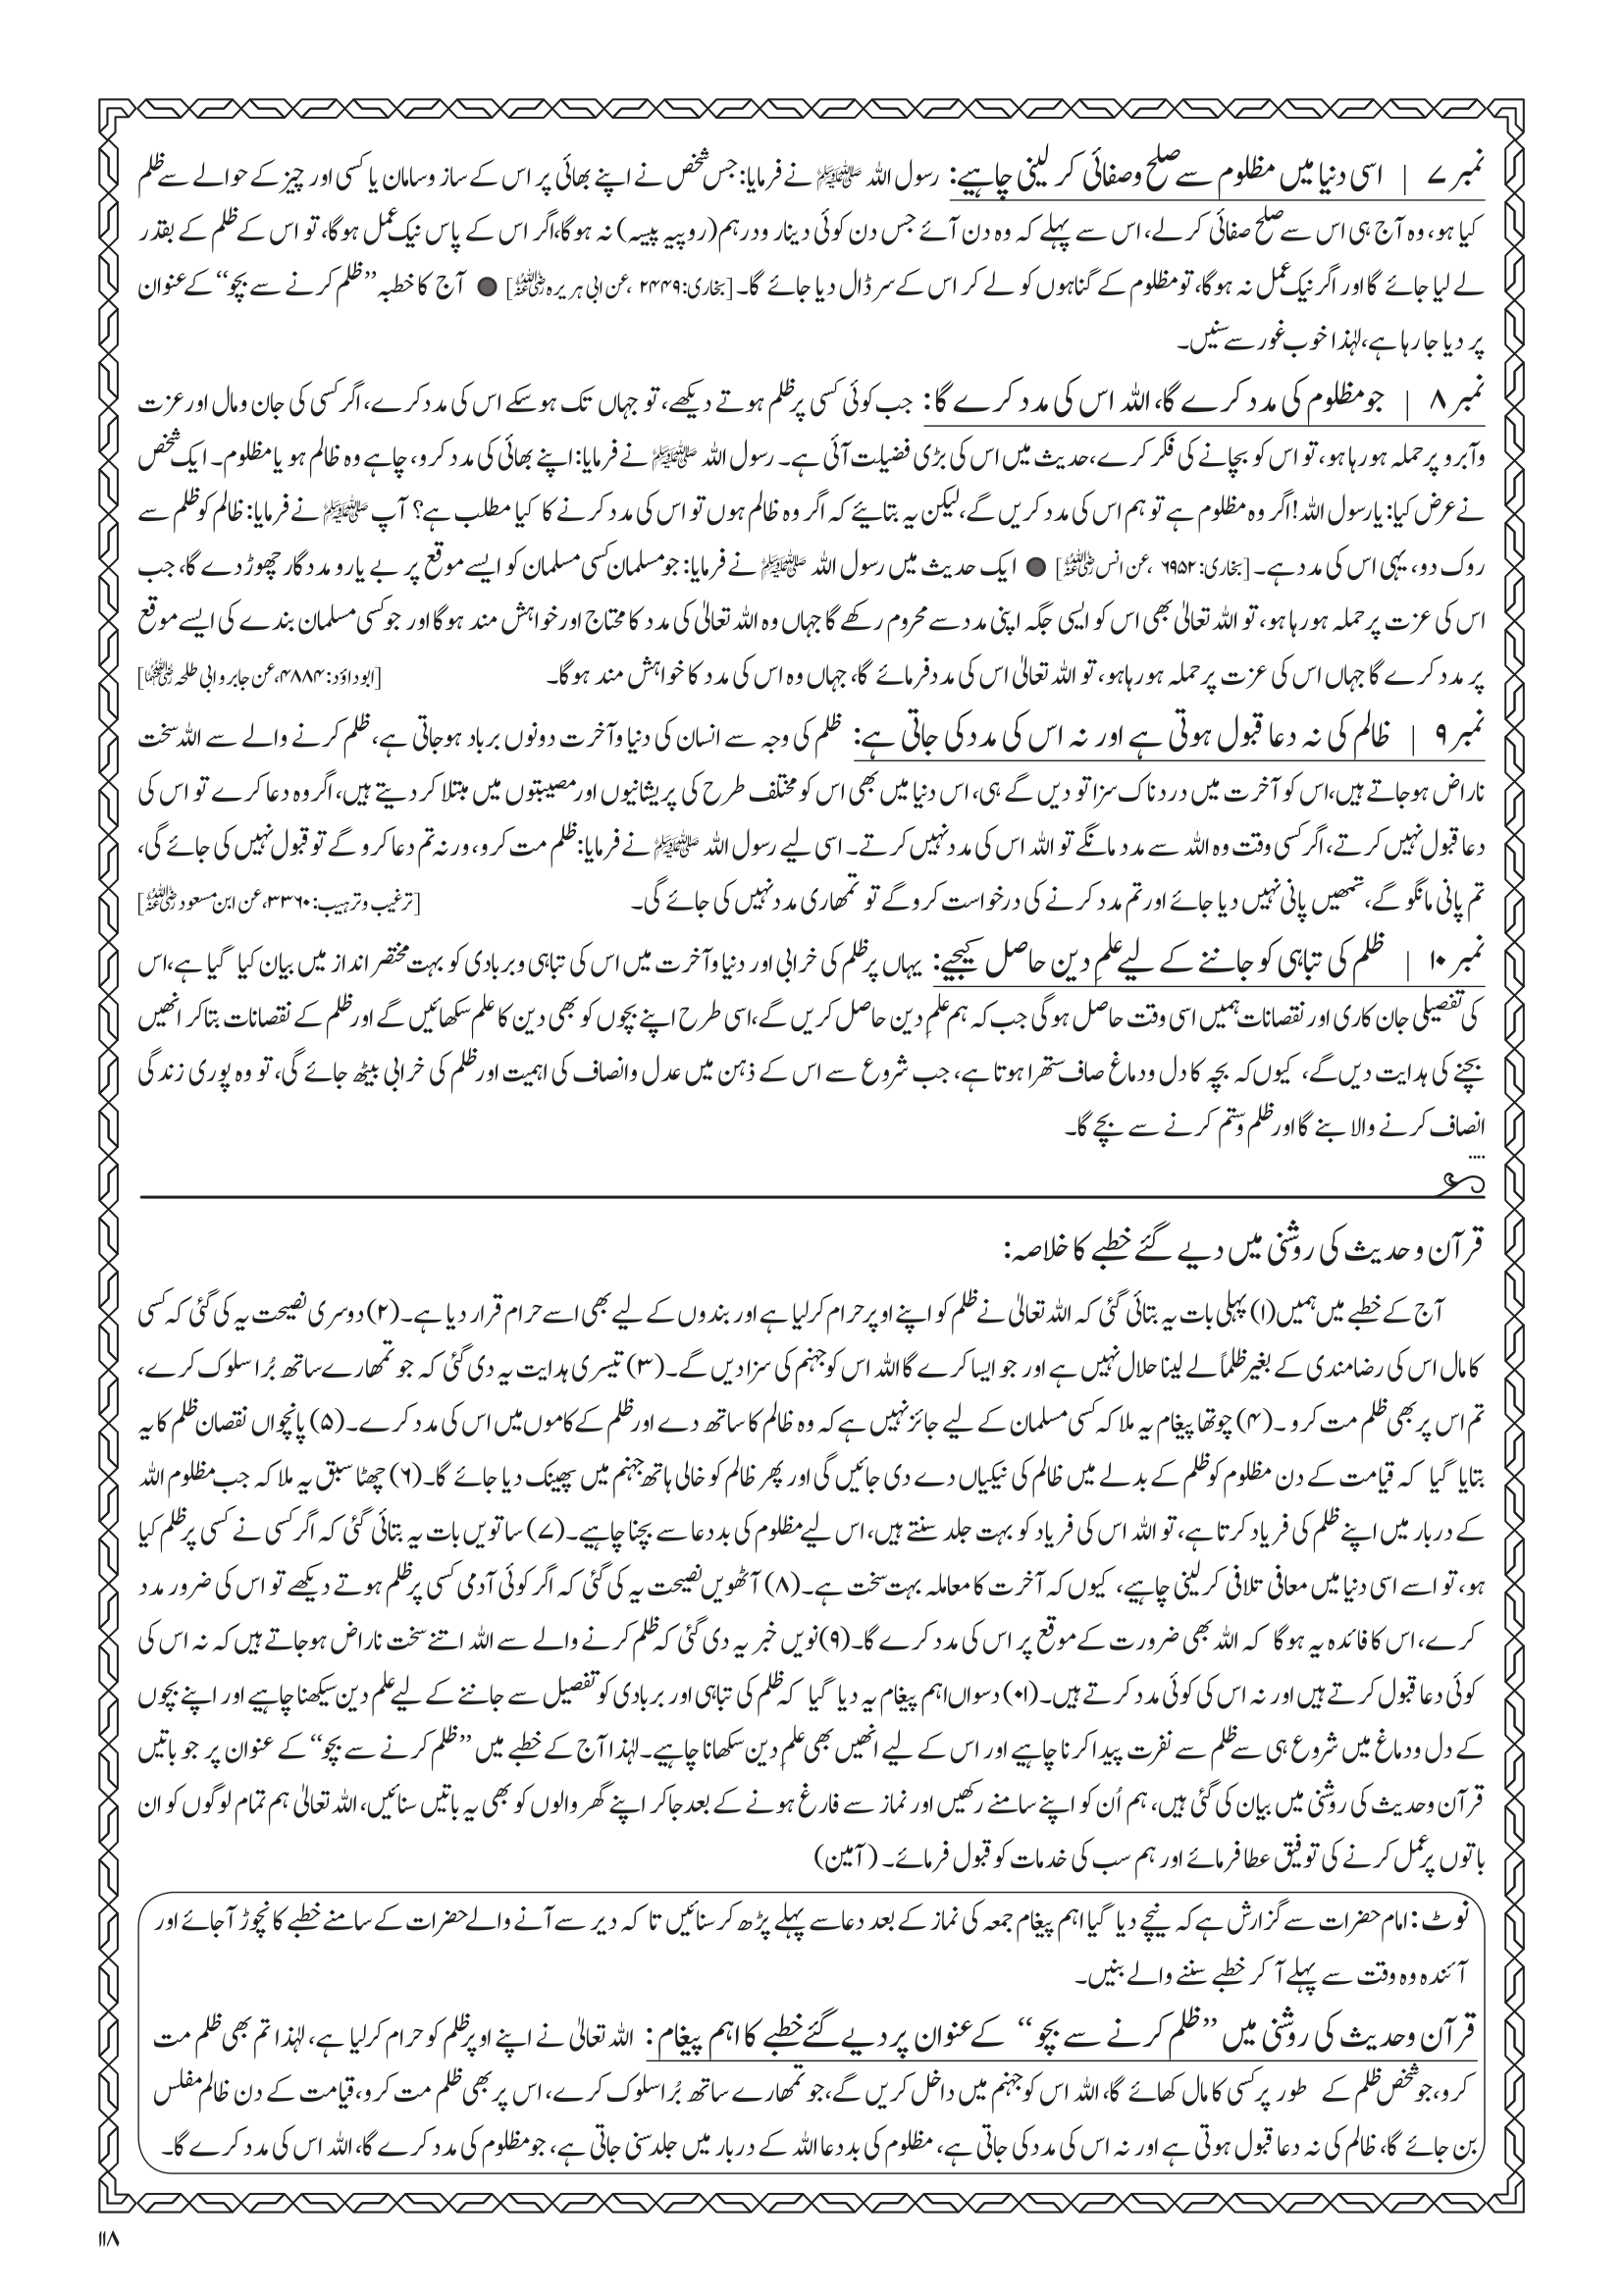 نمبر ۷ | اسی دنیا میں مظلوم سے صلح وصفائی کر لینی چاہیے: رسول اللہ ﷺ نے فرمایا: جس شخص نے اپنے بھائی پر اس کے ساز وسامان یا کسی اور چیز کے حوالے سے ظلم
کیا ہو، وہ آج ہی اس سے صلح صفائی کرلے، اس سے پہلے کہ وہ دن آئے جس دن کوئی دینار ودرہم (روپیہ پیسہ) نہ ہوگا،اگر اس کے پاس نیک عمل ہوگا، تو اس کے ظلم کے بقدر
لے لیا جائے گا اور اگر نیک عمل نہ ہوگا، تو مظلوم کے گناہوں کو لے کر اس کے سر ڈال دیا جائے گا۔ [بخاری: ۲۴۴۹ ،عن ابی ہریرہ رضی اللہ عنہ] ● آج کا خطبہ ’’ظلم کرنے سے بچو‘‘ کے عنوان
پر دیا جا رہا ہے، لہٰذا خوب غور سے سنیں۔
نمبر ۸ | جو مظلوم کی مدد کرے گا، اللہ اس کی مدد کرے گا: جب کوئی کسی پر ظلم ہوتے دیکھے، تو جہاں تک ہوسکے اس کی مدد کرے، اگر کسی کی جان ومال اور عزت
وآبرو پر حملہ ہورہا ہو، تو اس کو بچانے کی فکر کرے، حدیث میں اس کی بڑی فضیلت آئی ہے۔ رسول اللہ ﷺ نے فرمایا: اپنے بھائی کی مدد کرو، چاہے وہ ظالم ہو یا مظلوم۔ ایک شخص
نے عرض کیا: یا رسول اللہ! اگر وہ مظلوم ہے تو ہم اس کی مدد کریں گے، لیکن یہ بتائیے کہ اگر وہ ظالم ہوں تو اس کی مدد کرنے کا کیا مطلب ہے؟ آپ ﷺ نے فرمایا: ظالم کو ظلم سے
روک دو، یہی اس کی مدد ہے۔ [بخاری: ۶۹۵۲ ،عن انس رضی اللہ عنہ] ● ایک حدیث میں رسول اللہ ﷺ نے فرمایا: جو مسلمان کسی مسلمان کو ایسے موقع پر بے یارو مددگار چھوڑدے گا، جب
اس کی عزت پر حملہ ہورہا ہو، تو اللہ تعالیٰ بھی اس کو ایسی جگہ اپنی مدد سے محروم رکھے گا جہاں وہ اللہ تعالیٰ کی مدد کا محتاج اور خواہش مند ہوگا اور جو کسی مسلمان بندے کی ایسے موقع
پر مدد کرے گا جہاں اس کی عزت پر حملہ ہورہا ہو، تو اللہ تعالیٰ اس کی مدد فرمائے گا، جہاں وہ اس کی مدد کا خواہش مند ہوگا۔ [ابوداؤد: ۴۸۸۴، عن جابر و ابی طلحہ رضی اللہ عنہما]
نمبر ۹ | ظالم کی نہ دعا قبول ہوتی ہے اور نہ اس کی مدد کی جاتی ہے: ظلم کی وجہ سے انسان کی دنیا وآخرت دونوں برباد ہوجاتی ہے، ظلم کرنے والے سے اللہ سخت
ناراض ہوجاتے ہیں، اس کو آخرت میں دردناک سزا تو دیں گے ہی، اس دنیا میں بھی اس کو مختلف طرح کی پریشانیوں اور مصیبتوں میں مبتلا کردیتے ہیں، اگر وہ دعا کرے تو اس کی
دعا قبول نہیں کرتے، اگر کسی وقت وہ اللہ سے مدد مانگے تو اللہ اس کی مدد نہیں کرتے۔ اسی لیے رسول اللہ ﷺ نے فرمایا: ظلم مت کرو، ورنہ تم دعا کرو گے تو قبول نہیں کی جائے گی،
تم پانی مانگو گے، تمھیں پانی نہیں دیا جائے اور تم مدد کرنے کی درخواست کروگے تو تمھاری مدد نہیں کی جائے گی۔ [ترغیب و ترہیب: ۳۳۶۰، عن ابن مسعود رضی اللہ عنہ]
نمبر ۱۰ | ظلم کی تباہی کو جاننے کے لیے علمِ دین حاصل کیجیے: یہاں پر ظلم کی خرابی اور دنیا وآخرت میں اس کی تباہی وبربادی کو بہت مختصر انداز میں بیان کیا گیا ہے، اس
کی تفصیلی جان کاری اور نقصانات ہمیں اسی وقت حاصل ہوگی جب کہ ہم علمِ دین حاصل کریں گے، اسی طرح اپنے بچوں کو بھی دین کا علم سکھائیں گے اور ظلم کے نقصانات بتاکر انھیں
بچنے کی ہدایت دیں گے، کیوں کہ بچہ کا دل ودماغ صاف ستھرا ہوتا ہے، جب شروع سے اس کے ذہن میں عدل وانصاف کی اہمیت اور ظلم کی خرابی بیٹھ جائے گی، تو وہ پوری زندگی
انصاف کرنے والا بنے گا اور ظلم وستم کرنے سے بچے گا۔
....
قرآن و حدیث کی روشنی میں دیے گئے خطبے کا خلاصہ:
آج کے خطبے میں ہمیں (۱) پہلی بات یہ بتائی گئی کہ اللہ تعالیٰ نے ظلم کو اپنے اوپر حرام کرلیا ہے اور بندوں کے لیے بھی اسے حرام قرار دیا ہے۔ (۲) دوسری نصیحت یہ کی گئی کہ کسی
کا مال اس کی رضامندی کے بغیر ظلماً لے لینا حلال نہیں ہے اور جو ایسا کرے گا اللہ اس کو جہنم کی سزا دیں گے۔ (۳) تیسری ہدایت یہ دی گئی کہ جو تمھارے ساتھ بُرا سلوک کرے،
تم اس پر بھی ظلم مت کرو۔ (۴) چوتھا پیغام یہ ملا کہ کسی مسلمان کے لیے جائز نہیں ہے کہ وہ ظالم کا ساتھ دے اور ظلم کے کاموں میں اس کی مدد کرے۔ (۵) پانچواں نقصان ظلم کا یہ
بتایا گیا کہ قیامت کے دن مظلوم کو ظلم کے بدلے میں ظالم کی نیکیاں دے دی جائیں گی اور پھر ظالم کو خالی ہاتھ جہنم میں پھینک دیا جائے گا۔ (۶) چھٹا سبق یہ ملا کہ جب مظلوم اللہ
کے دربار میں اپنے ظلم کی فریاد کرتا ہے، تو اللہ اس کی فریاد کو بہت جلد سنتے ہیں، اس لیے مظلوم کی بددعا سے بچنا چاہیے۔ (۷) ساتویں بات یہ بتائی گئی کہ اگر کسی نے کسی پر ظلم کیا
ہو، تو اسے اسی دنیا میں معافی تلافی کرلینی چاہیے، کیوں کہ آخرت کا معاملہ بہت سخت ہے۔ (۸) آٹھویں نصیحت یہ کی گئی کہ اگر کوئی آدمی کسی پر ظلم ہوتے دیکھے تو اس کی ضرور مدد
کرے، اس کا فائدہ یہ ہوگا کہ اللہ بھی ضرورت کے موقع پر اس کی مدد کرے گا۔ (۹) نویں خبر یہ دی گئی کہ ظلم کرنے والے سے اللہ اتنے سخت ناراض ہوجاتے ہیں کہ نہ اس کی
کوئی دعا قبول کرتے ہیں اور نہ اس کی کوئی مدد کرتے ہیں۔ (۱۰) دسواں اہم پیغام یہ دیا گیا کہ ظلم کی تباہی اور بربادی کو تفصیل سے جاننے کے لیے علم دین سیکھنا چاہیے اور اپنے بچوں
کے دل ودماغ میں شروع ہی سے ظلم سے نفرت پیدا کرنا چاہیے اور اس کے لیے انھیں بھی علمِ دین سکھانا چاہیے۔ لہٰذا آج کے خطبے میں ’’ظلم کرنے سے بچو‘‘ کے عنوان پر جو باتیں
قرآن وحدیث کی روشنی میں بیان کی گئی ہیں، ہم اُن کو اپنے سامنے رکھیں اور نماز سے فارغ ہونے کے بعد جاکر اپنے گھر والوں کو بھی یہ باتیں سنائیں، اللہ تعالیٰ ہم تمام لوگوں کو ان
باتوں پر عمل کرنے کی توفیق عطا فرمائے اور ہم سب کی خدمات کو قبول فرمائے۔ (آمین)
نوٹ: امام حضرات سے گزارش ہے کہ نیچے دیا گیا اہم پیغام جمعہ کی نماز کے بعد دعا سے پہلے پڑھ کر سنائیں تا کہ دیر سے آنے والے حضرات کے سامنے خطبے کا نچوڑ آجائے اور
آئندہ وہ وقت سے پہلے آ کر خطبے سننے والے بنیں۔
قرآن وحدیث کی روشنی میں ’’ظلم کرنے سے بچو‘‘ کے عنوان پر دیے گئے خطبے کا اہم پیغام: اللہ تعالیٰ نے اپنے اوپر ظلم کو حرام کرلیا ہے، لہٰذا تم بھی ظلم مت
کرو، جو شخص ظلم کے طور پر کسی کا مال کھائے گا، اللہ اس کو جہنم میں داخل کریں گے، جو تمھارے ساتھ بُرا سلوک کرے، اس پر بھی ظلم مت کرو، قیامت کے دن ظالم مفلس
بن جائے گا، ظالم کی نہ دعا قبول ہوتی ہے اور نہ اس کی مدد کی جاتی ہے، مظلوم کی بددعا اللہ کے دربار میں جلد سنی جاتی ہے، جو مظلوم کی مدد کرے گا، اللہ اس کی مدد کرے گا۔
۱۱۸